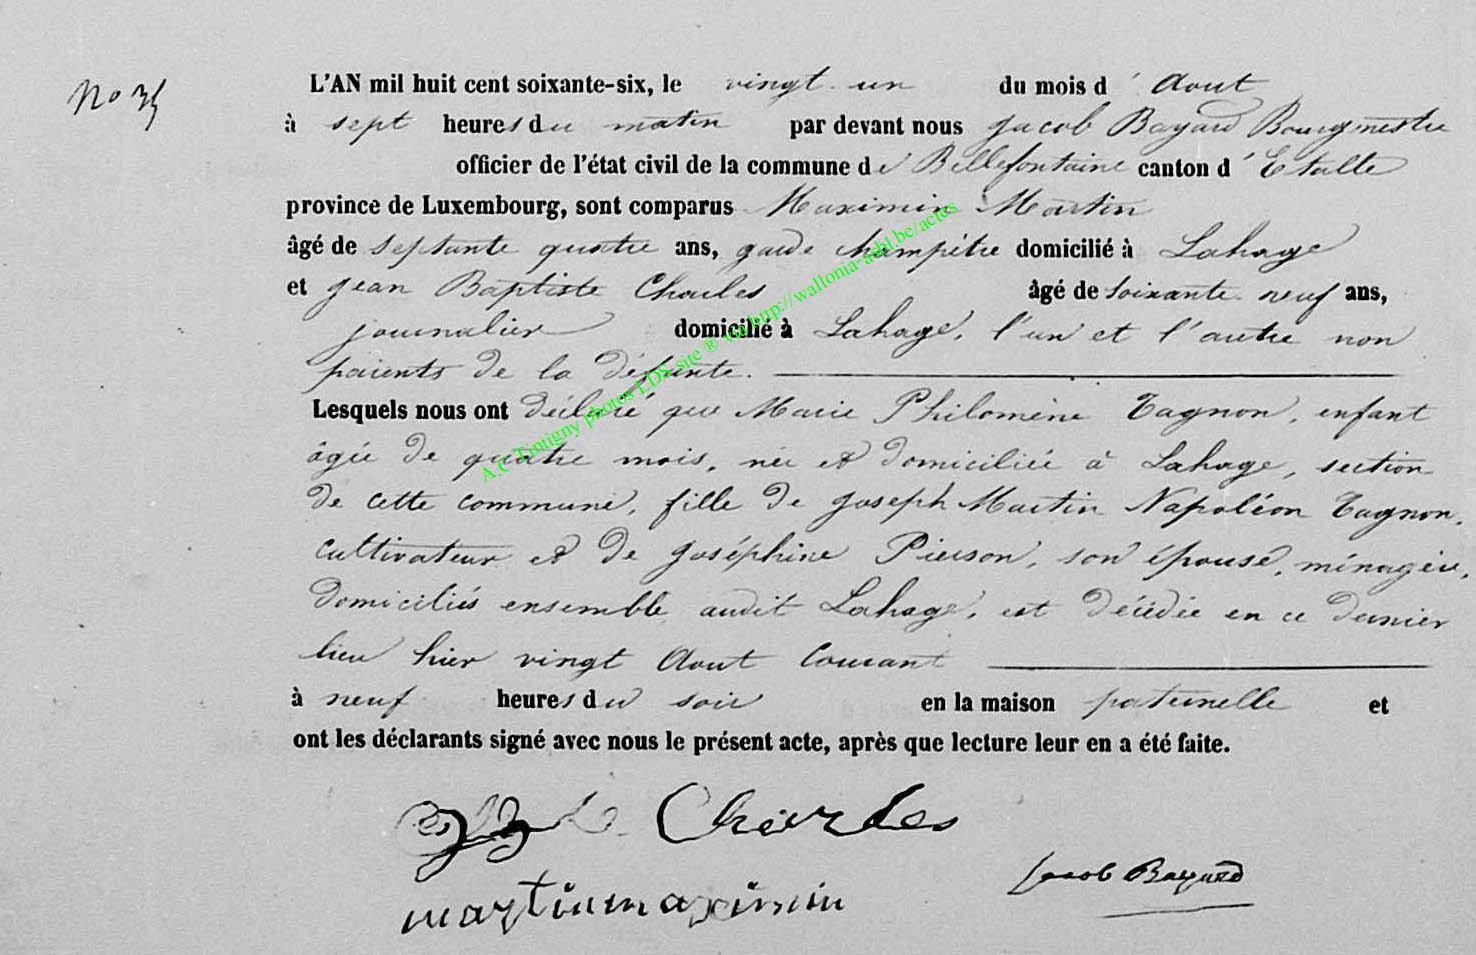 No 35
L'AN mil huit cent soixante-six, le vingt-un du mois d'Aout
à sept heures du matin par devant nous Jacob Bayard Bourgmestre
officier de l'état civil de la commune de Bellefontaine canton d'Etalle
province de Luxembourg, sont comparus Maximin Martin
âgé de septante quatre ans, garde champêtre domicilié à Lahage
et Jean Baptiste Charles âgé de soixante-neuf ans,
journalier domicilié à Lahage, l'un et l'autre non
parents de la défunte.
Lesquels nous ont déclaré que Marie Philomène Tagnon, enfant
âgée de quatre mois, née et domiciliée à Lahage, section
de cette commune, fille de Joseph Martin Napoléon Tagnon,
cultivateur et de Joséphine Pierson, son épouse, ménagère,
domiciliés ensemble audit Lahage, est décédée en ce dernier
lieu hier vingt Aout courant
à neuf heures du soir en la maison paternelle et
ont les déclarants signé avec nous le présent acte, après que lecture leur en a été faite.
Charles
martin maximin
Jacob Bayard
A.C Tintigny photos LDS site ® via http://wallonia-asbl.be/actes